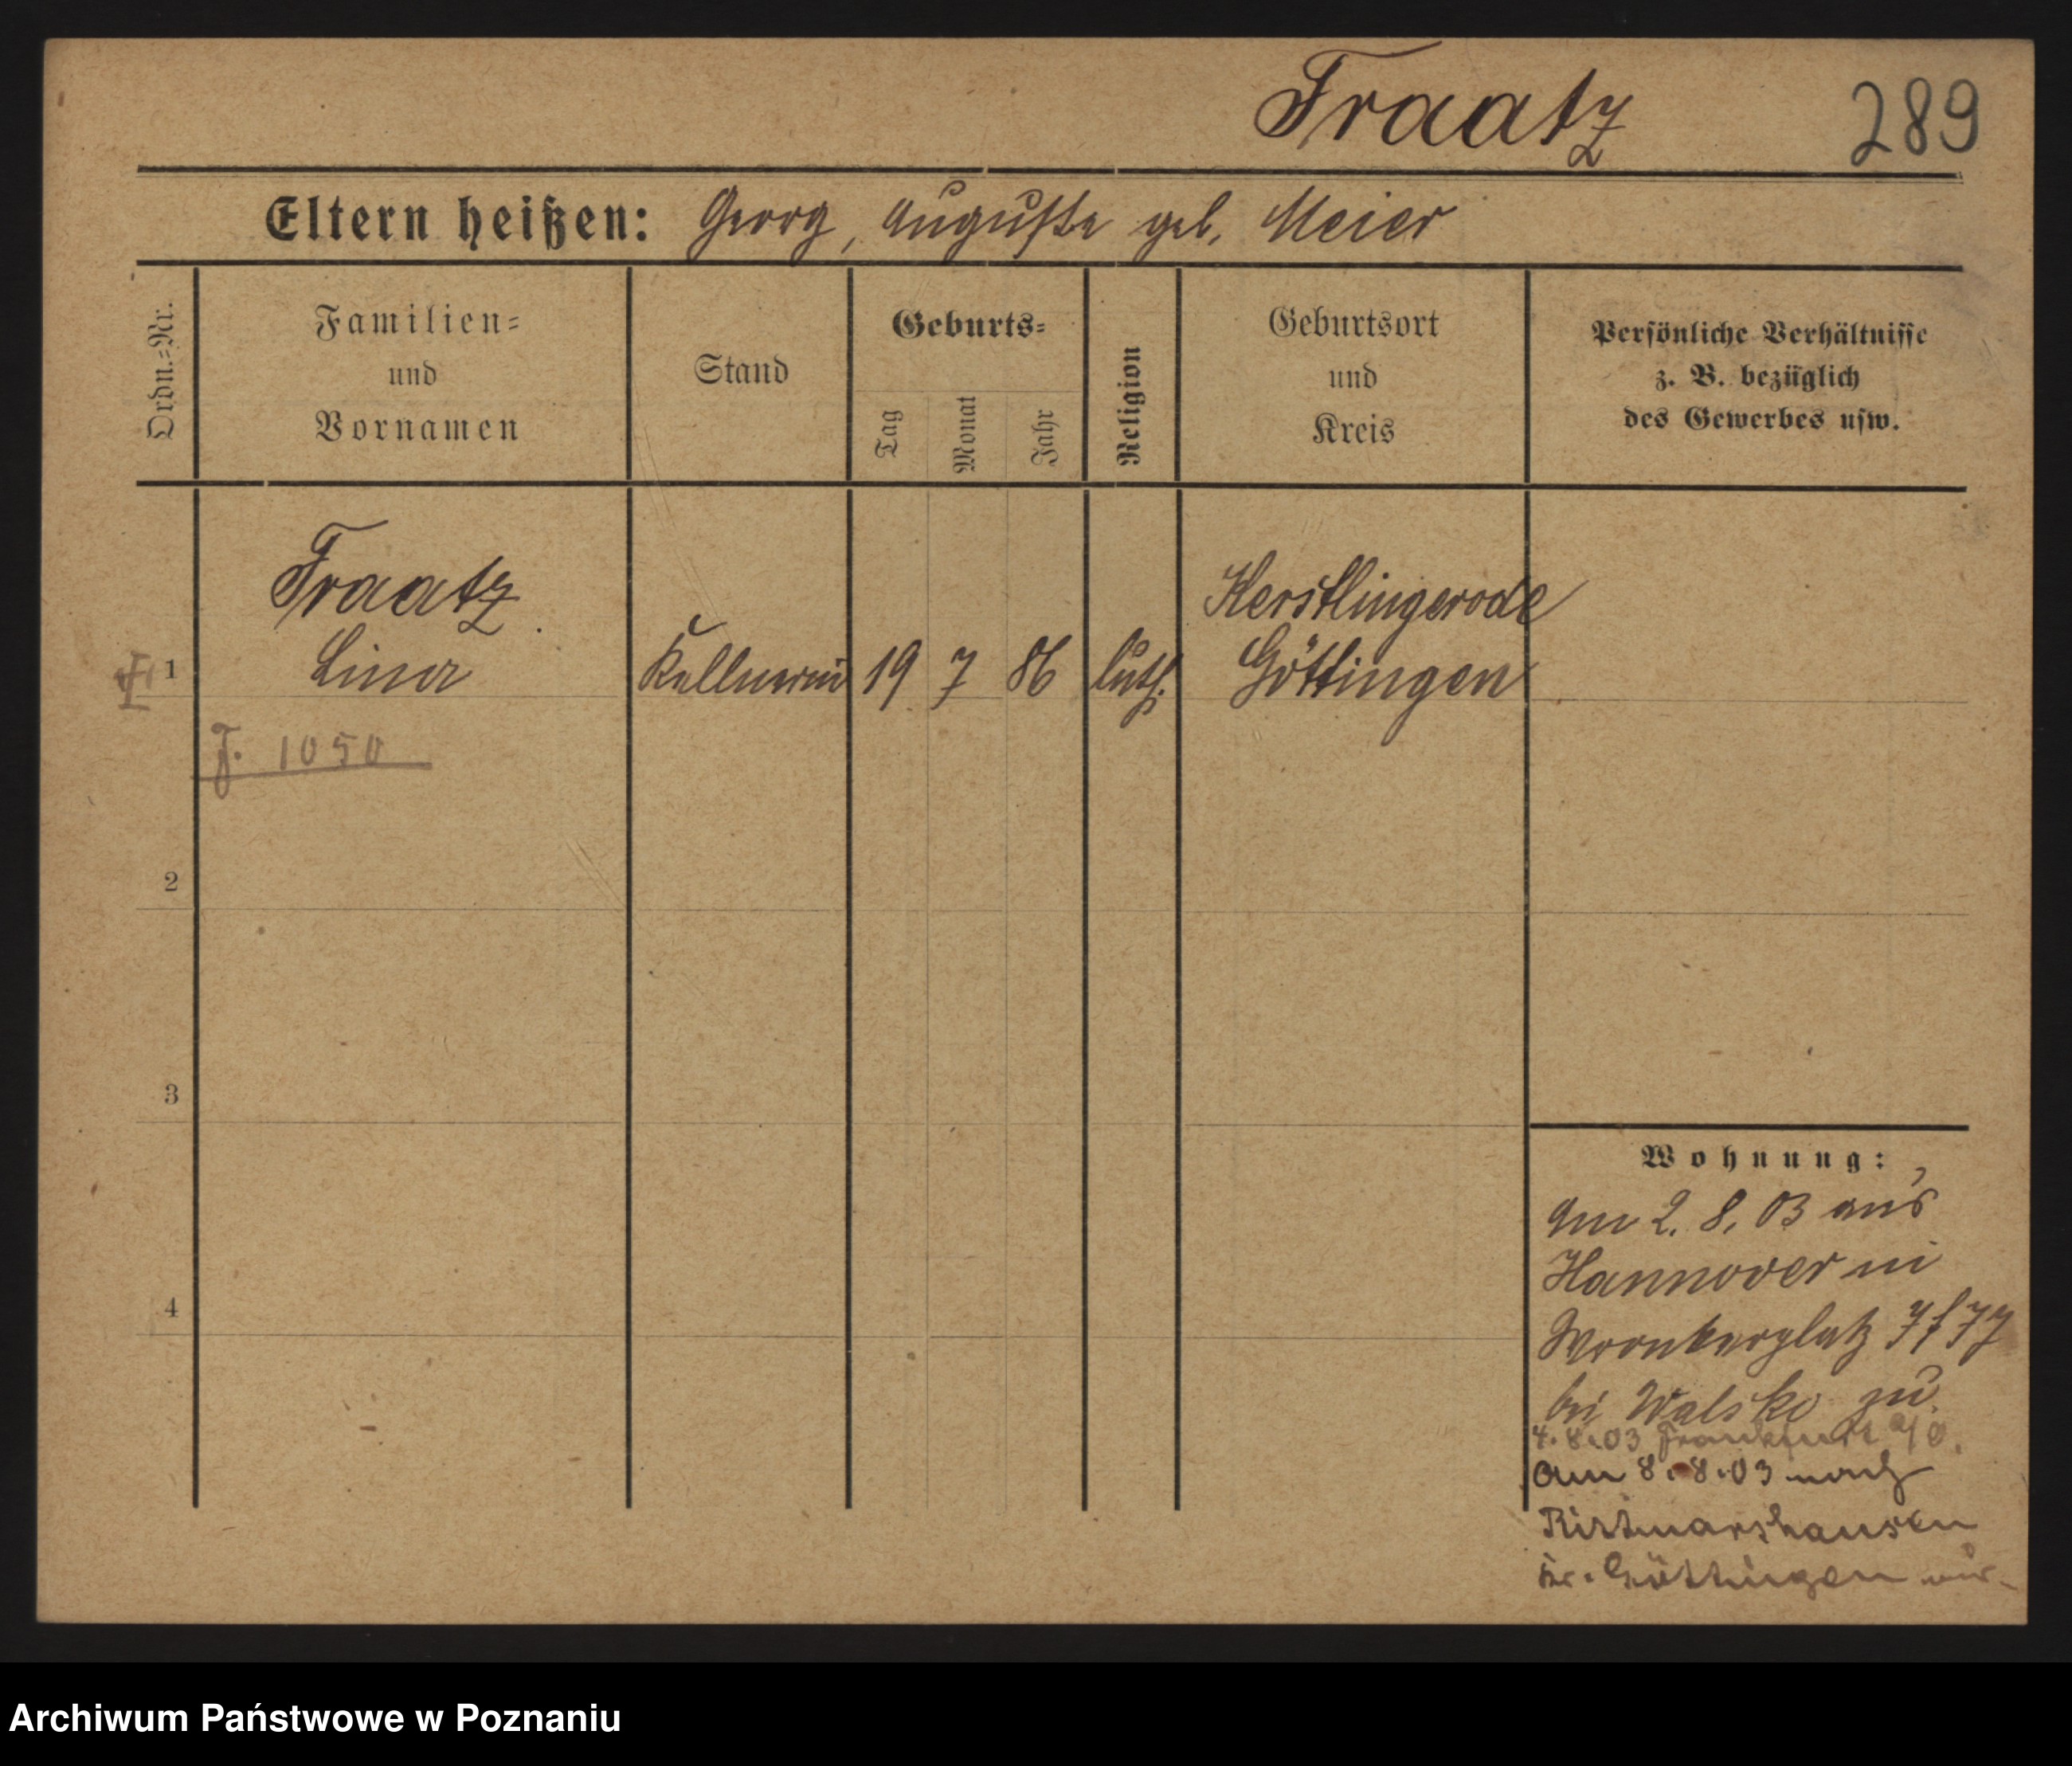 Fraatz 289
Eltern heißen: Georg, Auguste geb. Meier
Ordn.-Nr.
Familien-
und
Vornamen
Stand
Geburts-
Tag
Monat
Jahr
Religion
Geburtsort
und
Kreis
Persönliche Verhältnisse
z. B. bezüglich
des Gewerbes usw.
Fraatz
Kerstlingerode
1 Lina Kellnerin 19 7 86 luth. Göttingen
F. 1050
2
3
4
Wohnung:
Am 2. 8. 03 aus
Hannover in
Wronkerplatz
bei zu
4.8.03 Frankfurt a/O.
am 8.8.03 nach
Rittmarshausen
Kr. Göttingen
Archiwum Państwowe w Poznaniu